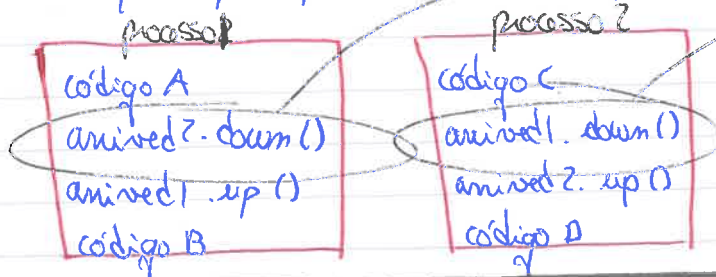 processo 1
código A
arrived2.down()
arrived1.up()
código B
processo 2
código C
arrived1.down()
arrived2.up()
código D